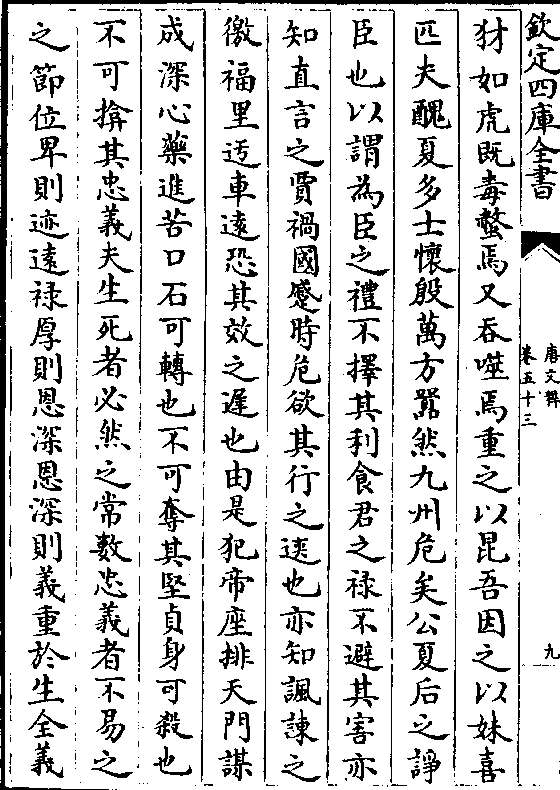 欽定四庫全書
唐文粹
卷五十三
九
豺如虎既毒螫焉又吞噬焉重之以昆吾因之以妹喜
匹夫醜夏多士懷殷萬方嚣然九州危矣公夏后之諍
臣也以謂為臣之禮不擇其利食君之禄不避其害亦
知直言之賈禍國蹙時危欲其行之速也亦知諷諌之
徼福里迃車遠恐其效之遲也由是犯帝座排天門謀
成深心藥進苦口石可轉也不可奪其堅貞身可殺也
不可揜其忠義夫生死者必然之常數忠義者不易之
之節位卑則迹遠禄厚則恩深恩深則義重於生全義